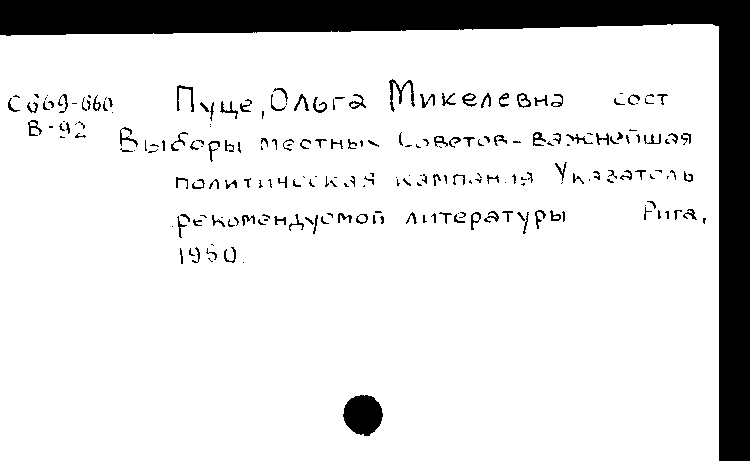 С669-660 Пуце, Ольга Микелевна сост
В-92 Выборы местных Советов- важнейшая
политическая кампания Указатель
рекомендуемой литературы Рига,
1950.